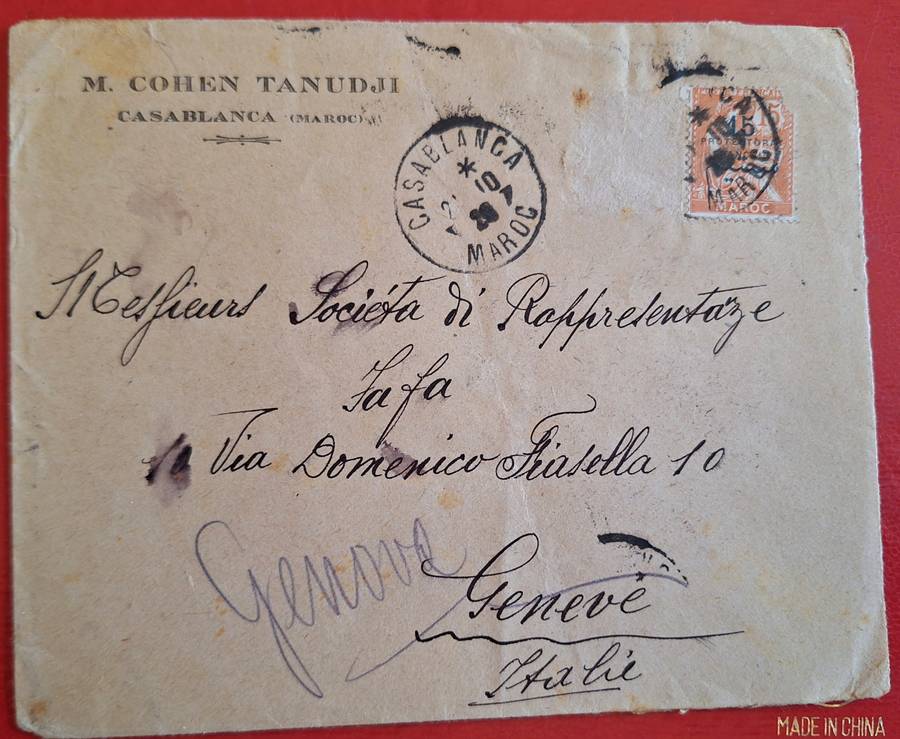 M. COHEN TANUDJI
CASABLANCA (MAROC)
CASABLANCA
* 10
MAROC
15
MAROC
MAROC
Messieurs Societa di Rappresentaze
Fafa
10 Via Domenico Fiasella 10
Genova
Genevè
Italie
MADE IN CHINA